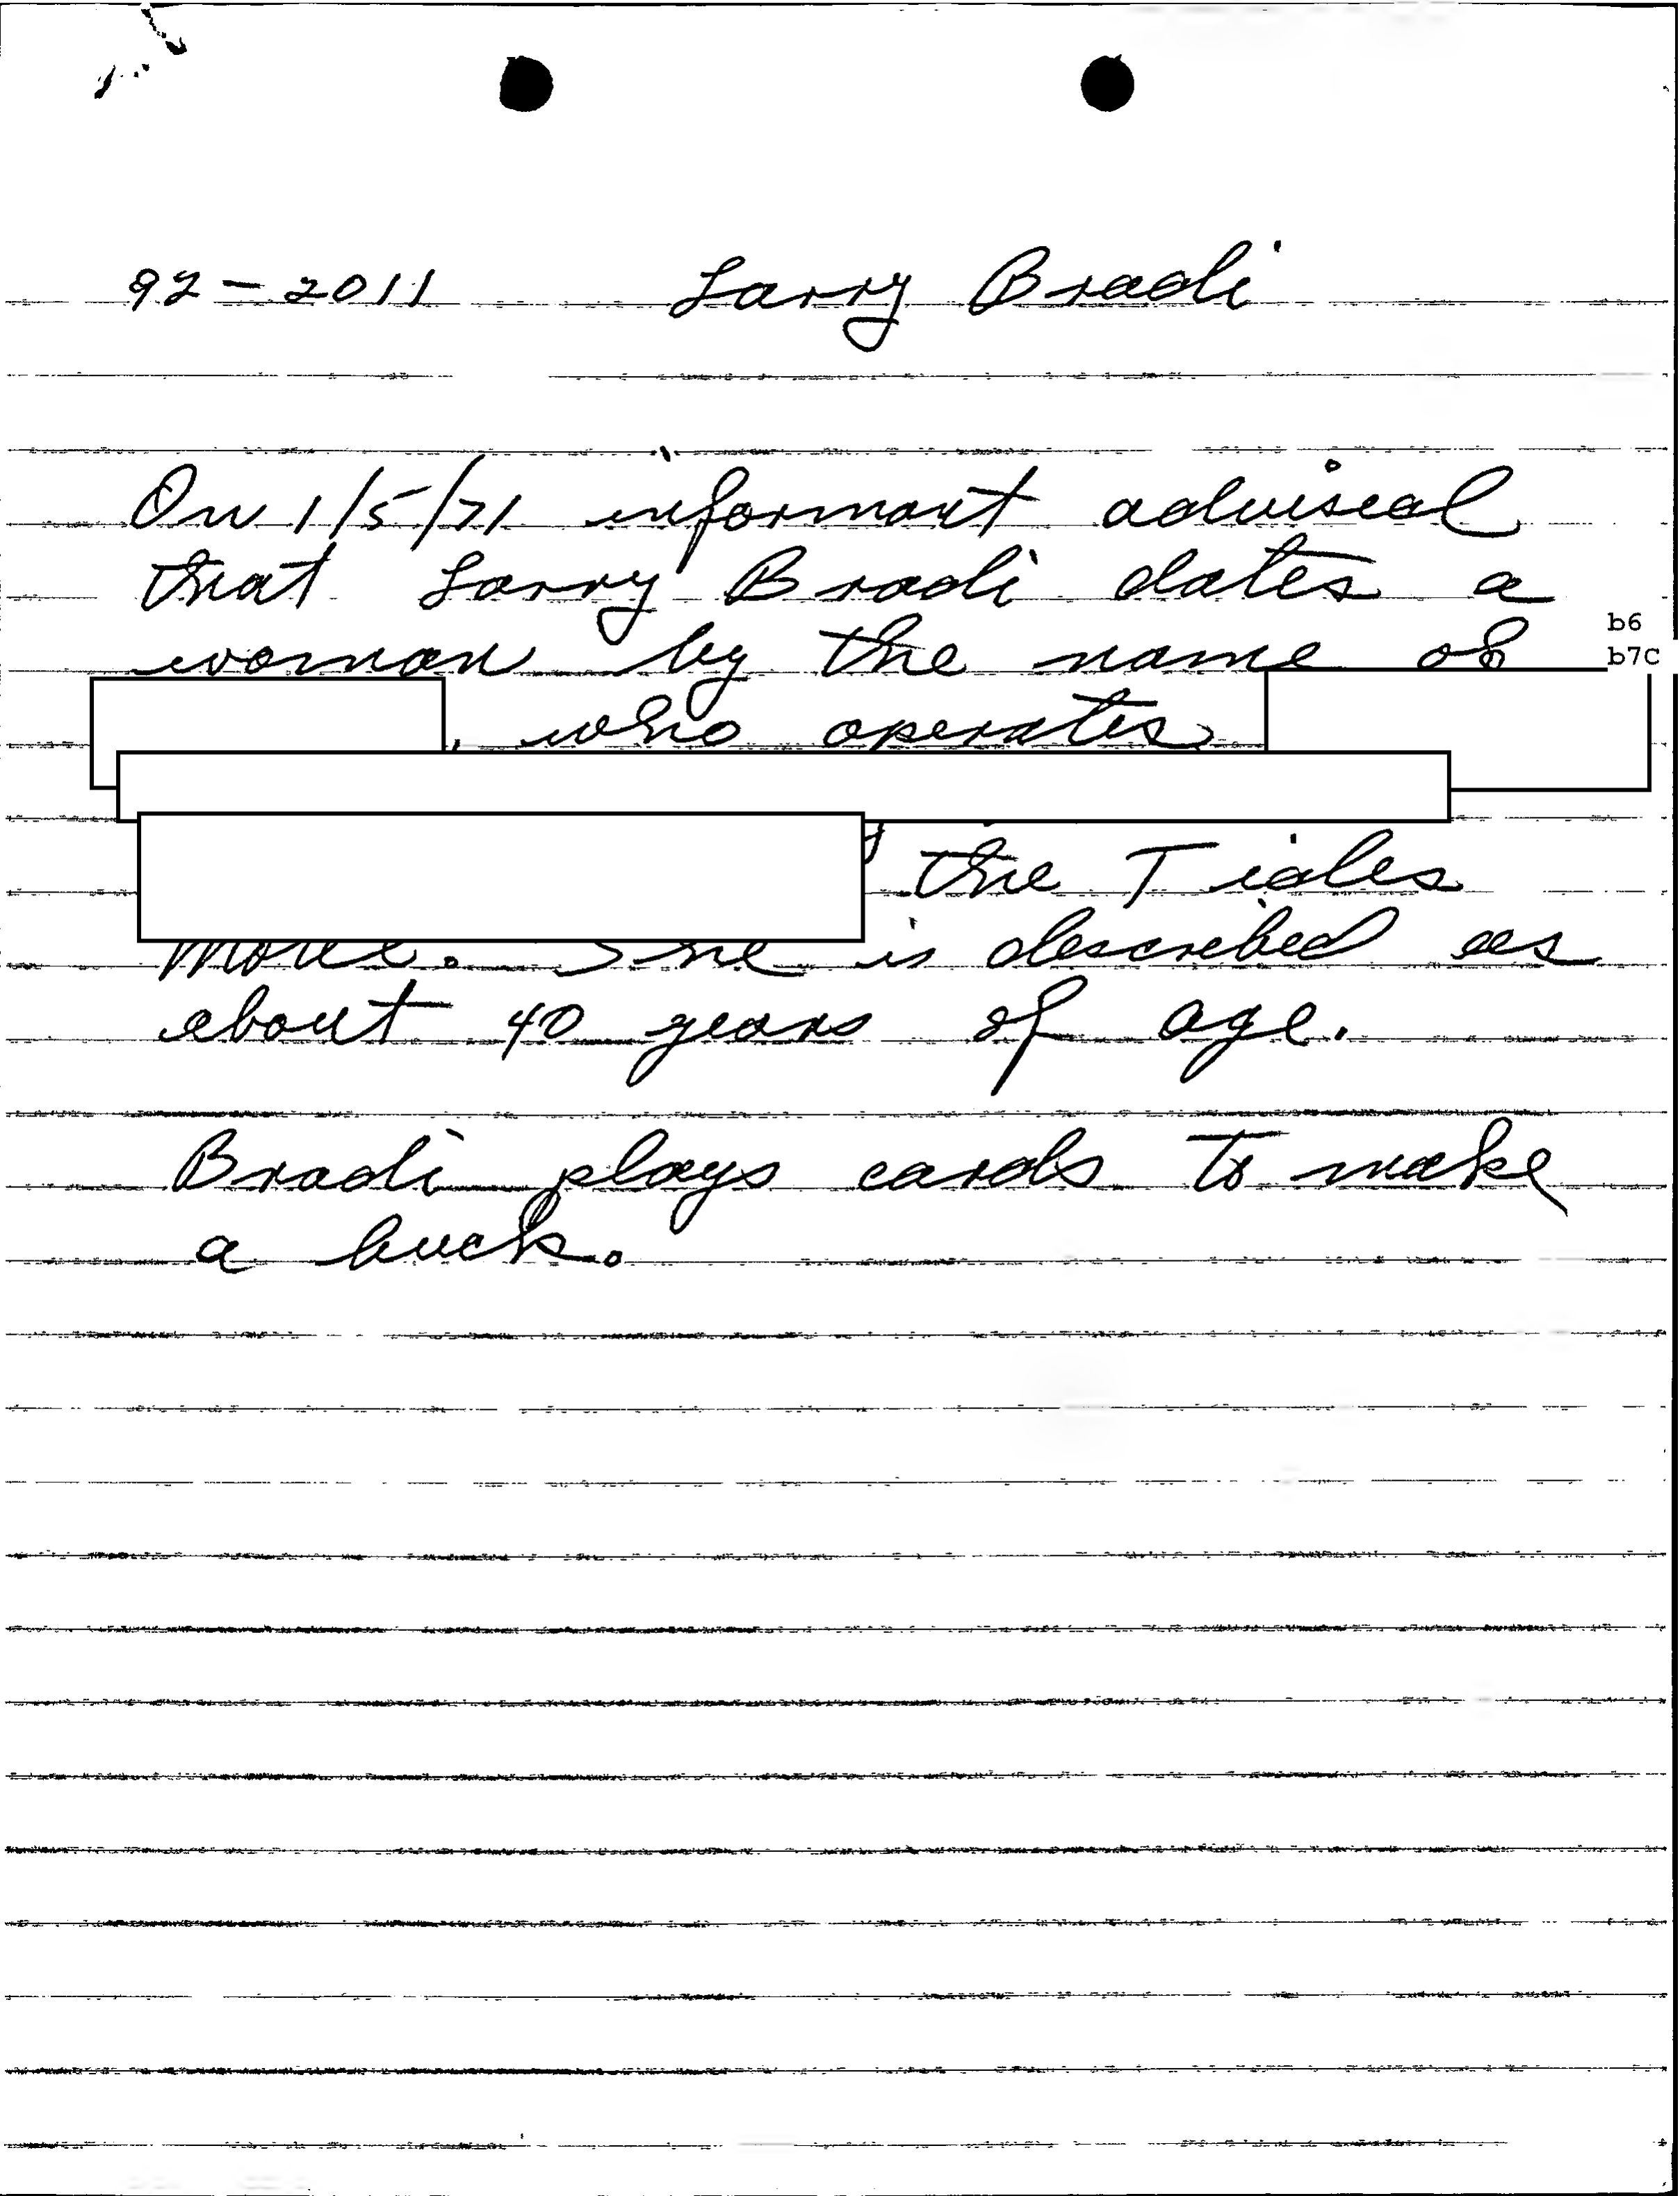 92-2011 Larry Bradi
On 1/5/71 informant advised
that Larry Bradi dates a
woman by the name of
b6
b7C
, who operates
the Tides
Motel. She is described as
about 40 years of age.
Bradi plays cards to make
a buck.